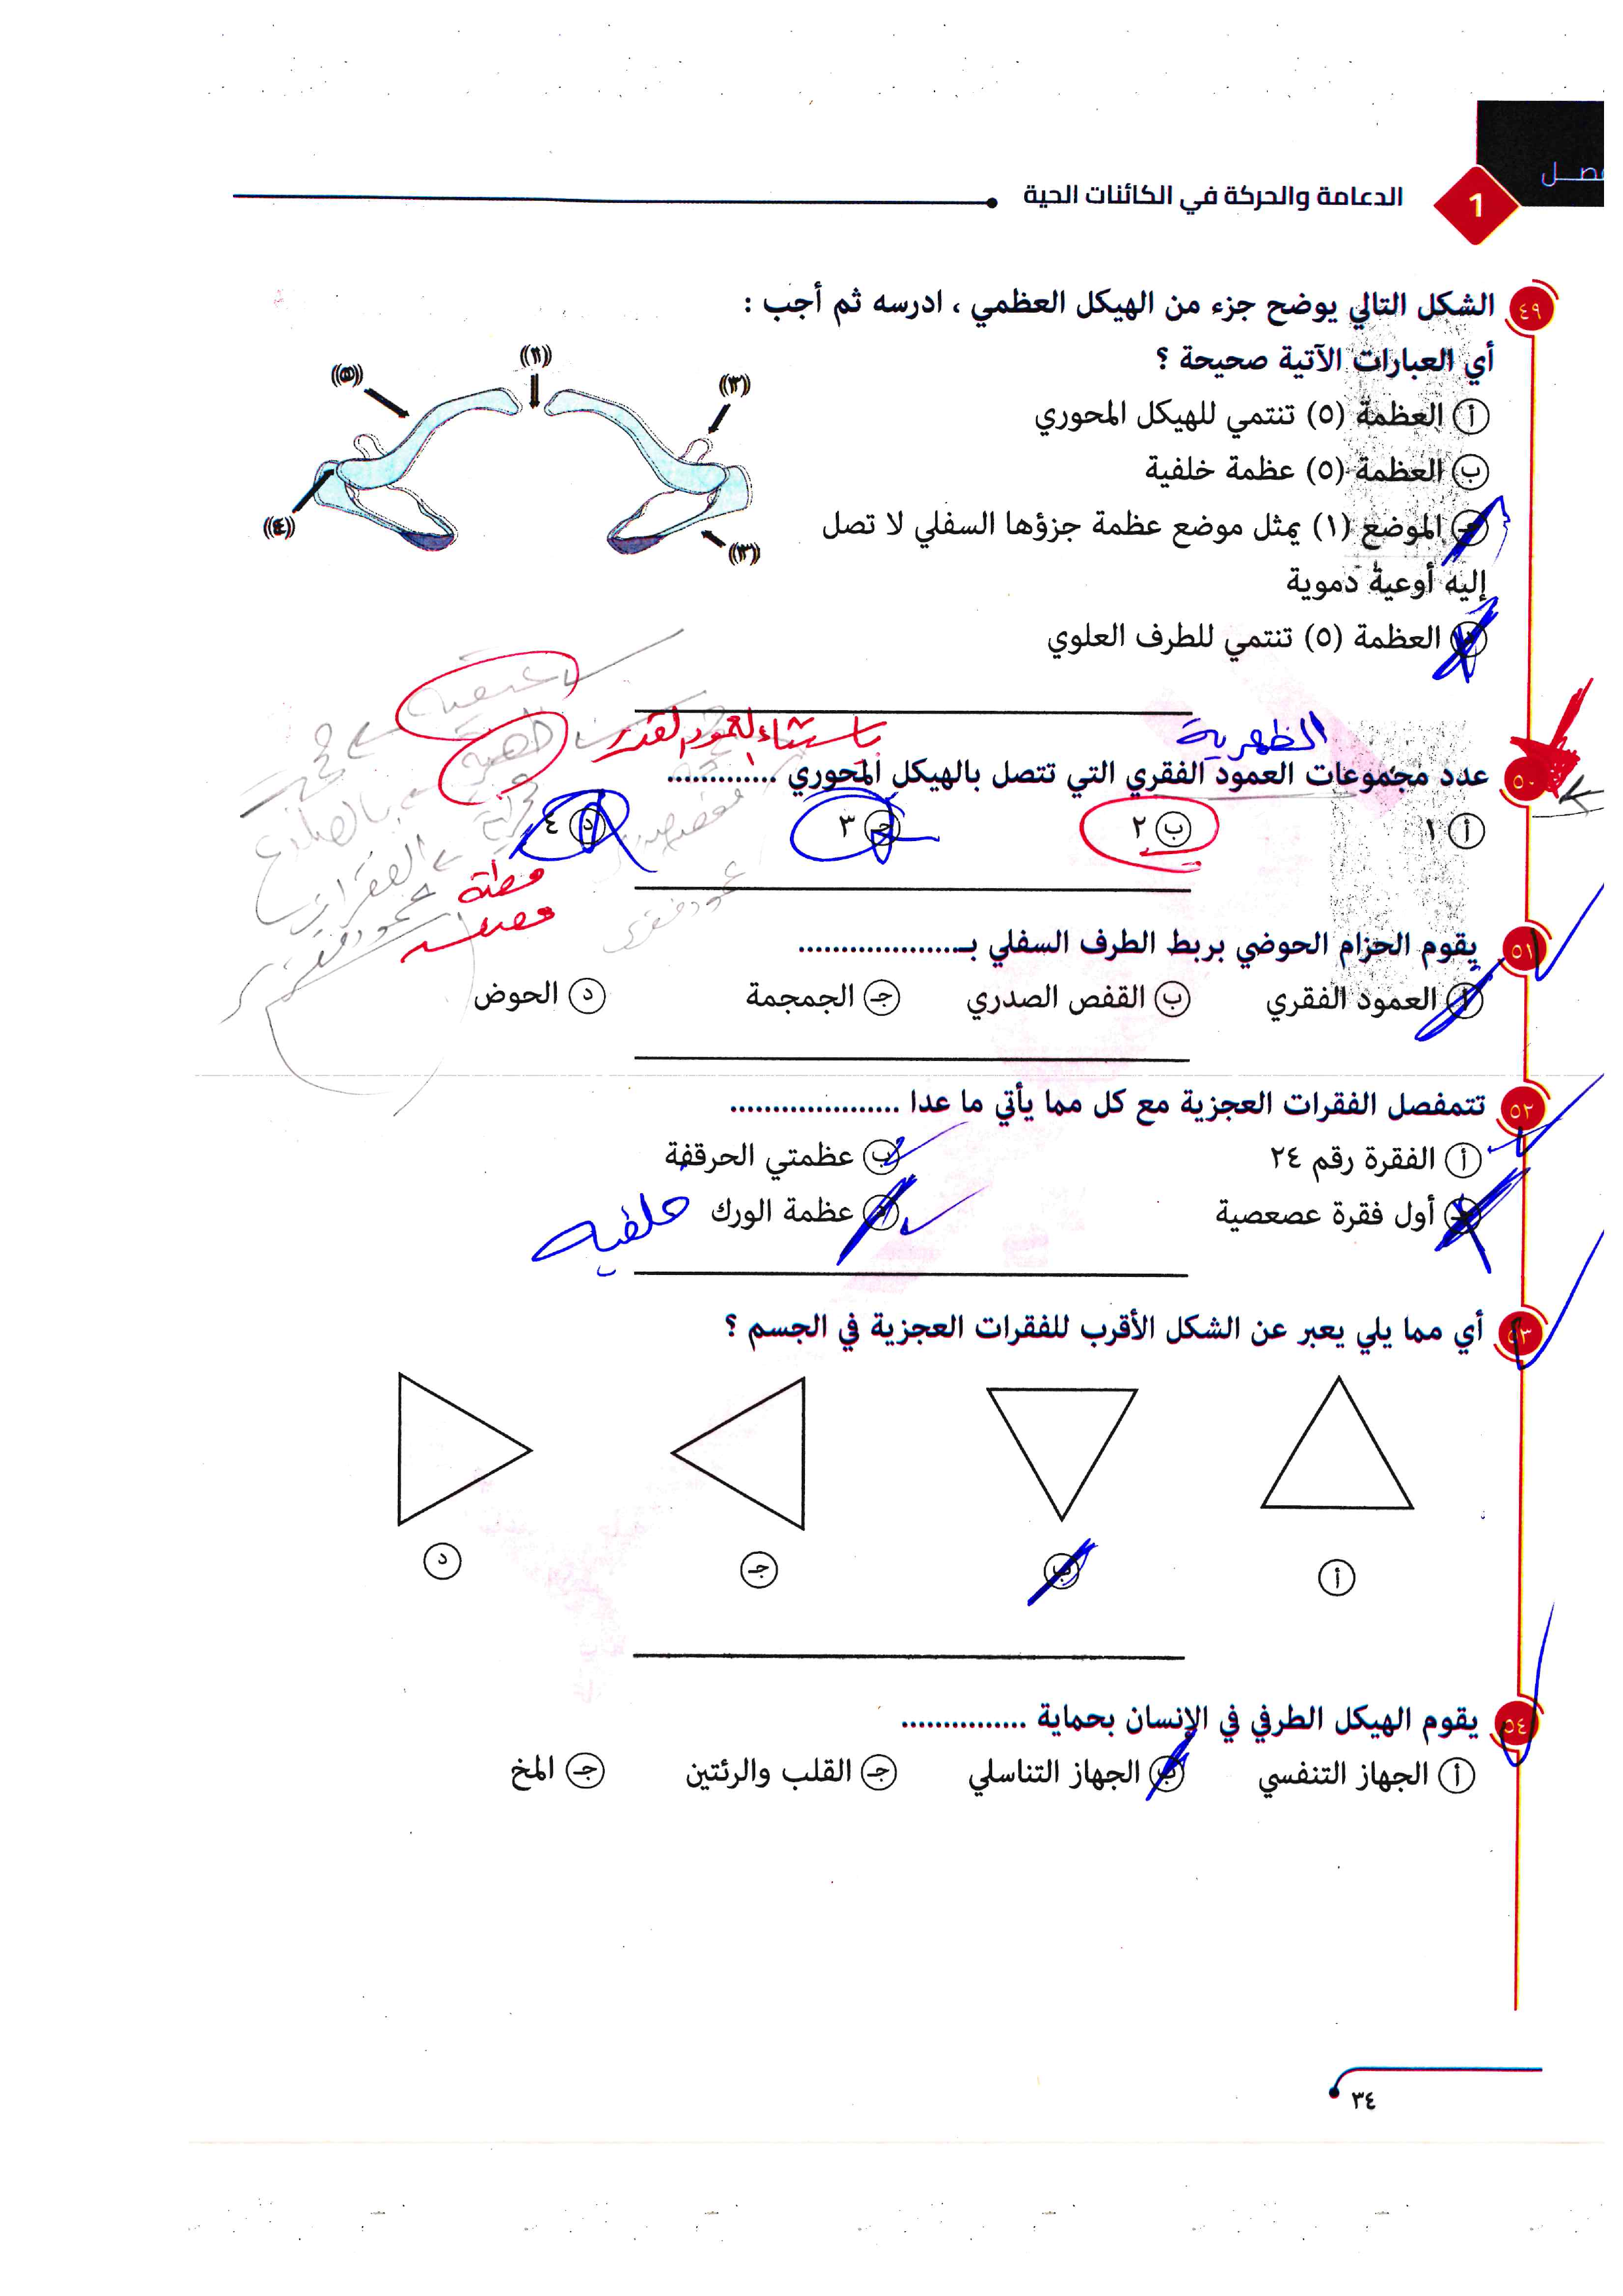 فصـــل
1
الدعامة والحركة في الكائنات الحية
٤٩ الشكل التالي يوضح جزء من الهيكل العظمي ، ادرسه ثم أجب :
أي العبارات الآتية صحيحة ؟
أ العظمة (٥) تنتمي للهيكل المحوري
ب العظمة (٥) عظمة خلفية
جـ الموضع (١) يمثل موضع عظمة جزؤها السفلي لا تصل
إليه أوعية دموية
د العظمة (٥) تنتمي للطرف العلوي
(٥)
(١)
(٢)
(٤)
(٣)
باستثناء العمود الفقري
الظهرية
٥٠ عدد مجموعات العمود الفقري التي تتصل بالهيكل المحوري .............
أ ١
ب ٢
جـ ٣
د ٤
عمود فقري
٥١ يقوم الحزام الحوضي بربط الطرف السفلي بـ...................
أ العمود الفقري
ب القفص الصدري
جـ الجمجمة
د الحوض
٥٢ تتمفصل الفقرات العجزية مع كل مما يأتي ما عدا ....................
أ الفقرة رقم ٢٤
ب عظمتي الحرقفة
جـ أول فقرة عصعصية
د عظمة الورك
خلفية
٥٣ أي مما يلي يعبر عن الشكل الأقرب للفقرات العجزية في الجسم ؟
أ
ب
جـ
د
٥٤ يقوم الهيكل الطرفي في الإنسان بحماية ...............
أ الجهاز التنفسي
ب الجهاز التناسلي
جـ القلب والرئتين
جـ المخ
٣٤